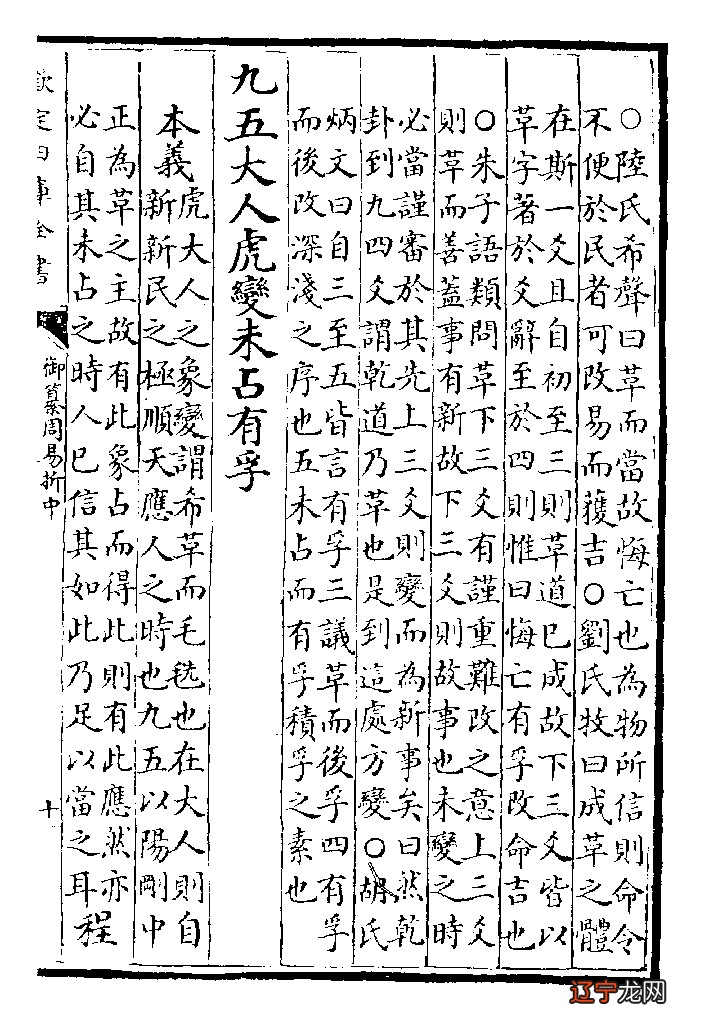 ○陸氏希聲曰革而當故悔亡也為物所信則命令
不便於民者可改易而獲吉○劉氏牧曰成革之體
在斯一爻且自初至三則革道已成故下三爻皆以
革字著於爻辭至於四則惟曰悔亡有孚改命吉也
○朱子語類問革下三爻有謹重難改之意上三爻
則革而善蓋事有新故下三爻則故事也未變之時
必當謹審於其先上三爻則變而為新事矣曰然乾
卦到九四爻謂乾道乃革也是到這處方變○胡氏
炳文曰自三至五皆言有孚三議革而後孚四有孚
而後改深淺之序也五未占而有孚積孚之素也
九五大人虎變未占有孚
本義虎大人之象變謂希革而毛毨也在大人則自
新新民之極順天應人之時也九五以陽剛中
正為革之主故有此象占而得此則有此應然亦
必自其未占之時人已信其如此乃足以當之耳程
欽定四庫全書
御纂周易折中
十
辽宁龙网